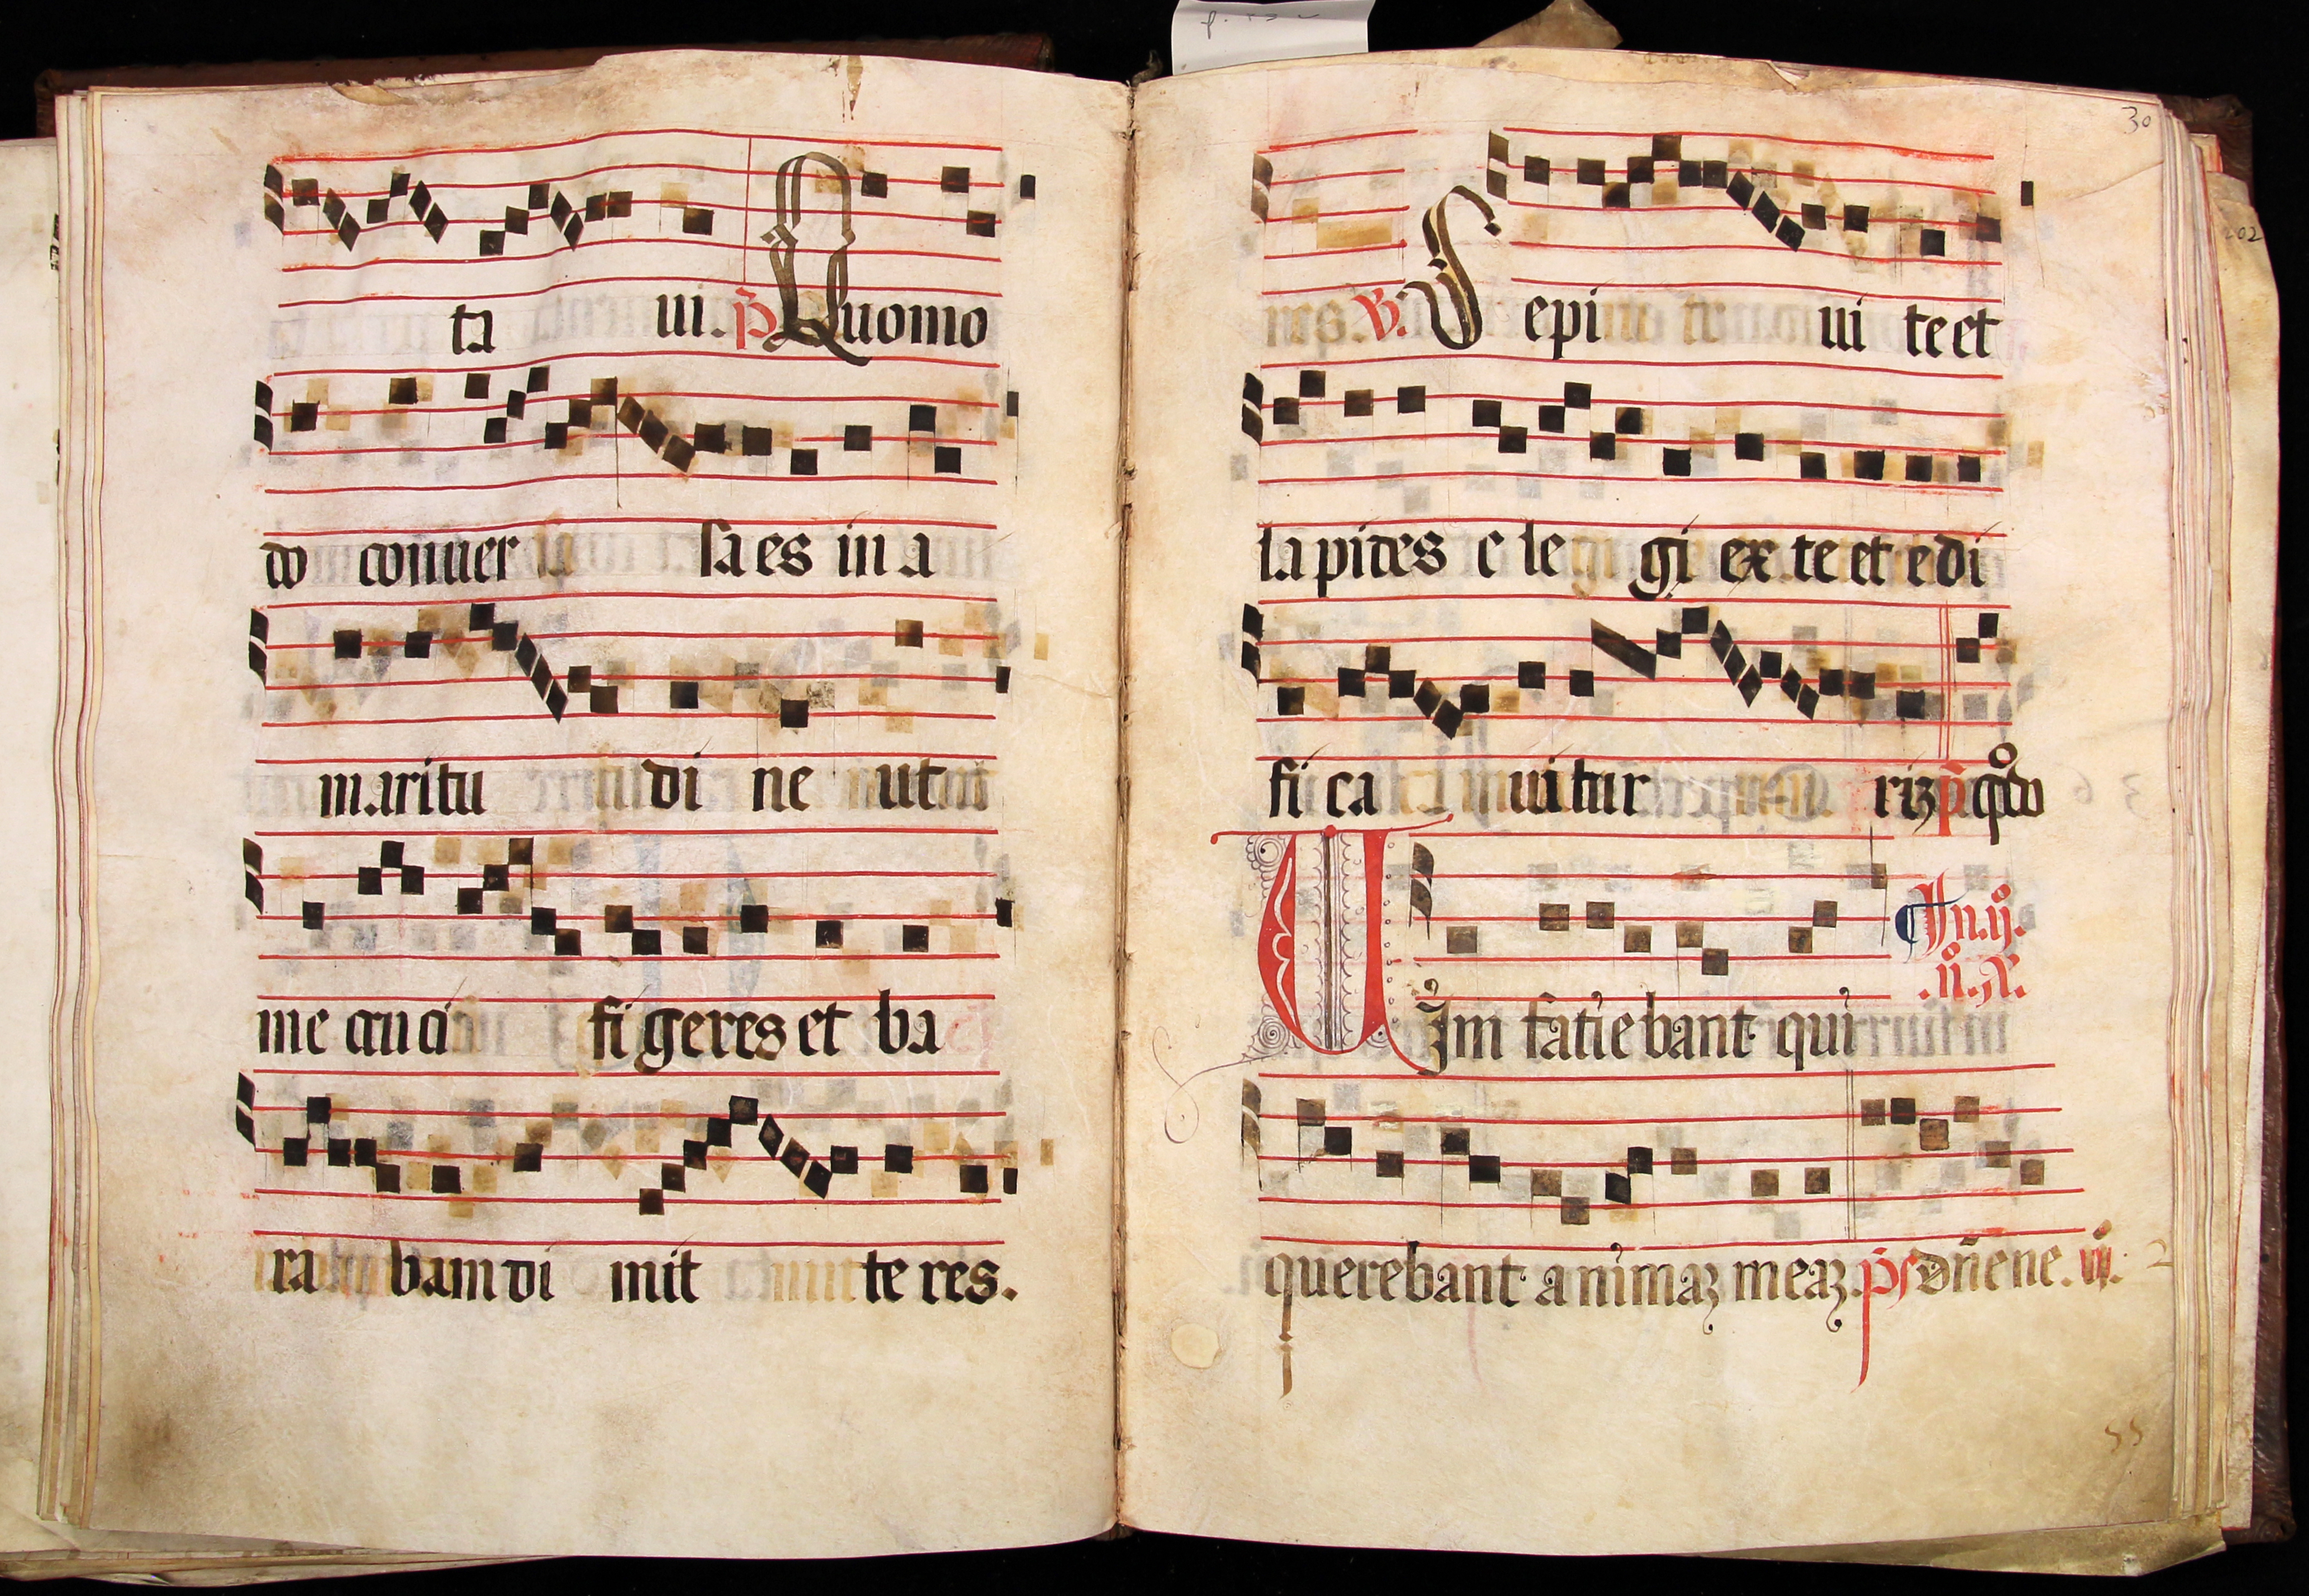 ta ui. p̄ Quomo
do conuer sa es in a
maritu di ne ut
me cruci fi geres et ba
ra bam di mit te res.
30
res. ℣. Sepi ui te et
lapides e le gi ex te et edi
fi ca ui tur riꝫ p̄ qº̄do
Uim fatiebant qui
In. ij.
.nº.
querebant animaꝫ meaꝫ. ps dn̄e ne. ij.
55
202